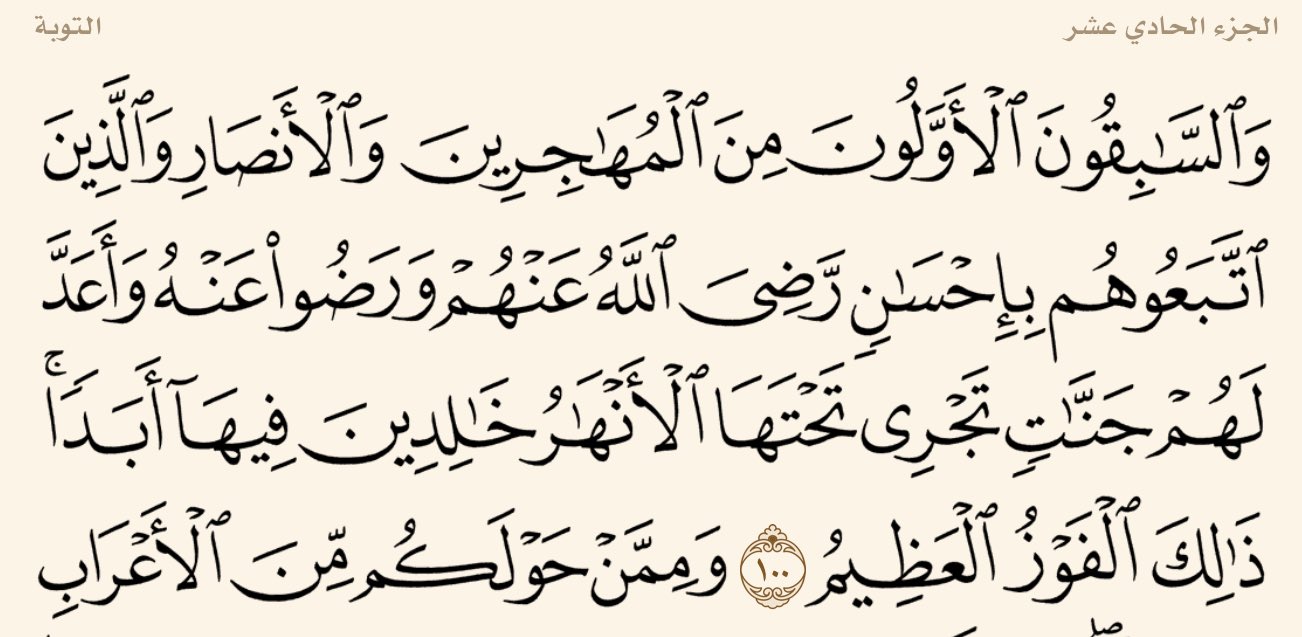 الجزء الحادي عشر التوبة
وَٱلسَّٰبِقُونَ ٱلْأَوَّلُونَ مِنَ ٱلْمُهَٰجِرِينَ وَٱلْأَنصَارِ وَٱلَّذِينَ
ٱتَّبَعُوهُم بِإِحْسَٰنٍ رَّضِىَ ٱللَّهُ عَنْهُمْ وَرَضُوا۟ عَنْهُ وَأَعَدَّ
لَهُمْ جَنَّٰتٍ تَجْرِى تَحْتَهَا ٱلْأَنْهَٰرُ خَٰلِدِينَ فِيهَآ أَبَدًا ۚ
ذَٰلِكَ ٱلْفَوْزُ ٱلْعَظِيمُ ١٠٠ وَمِمَّنْ حَوْلَكُم مِّنَ ٱلْأَعْرَابِ